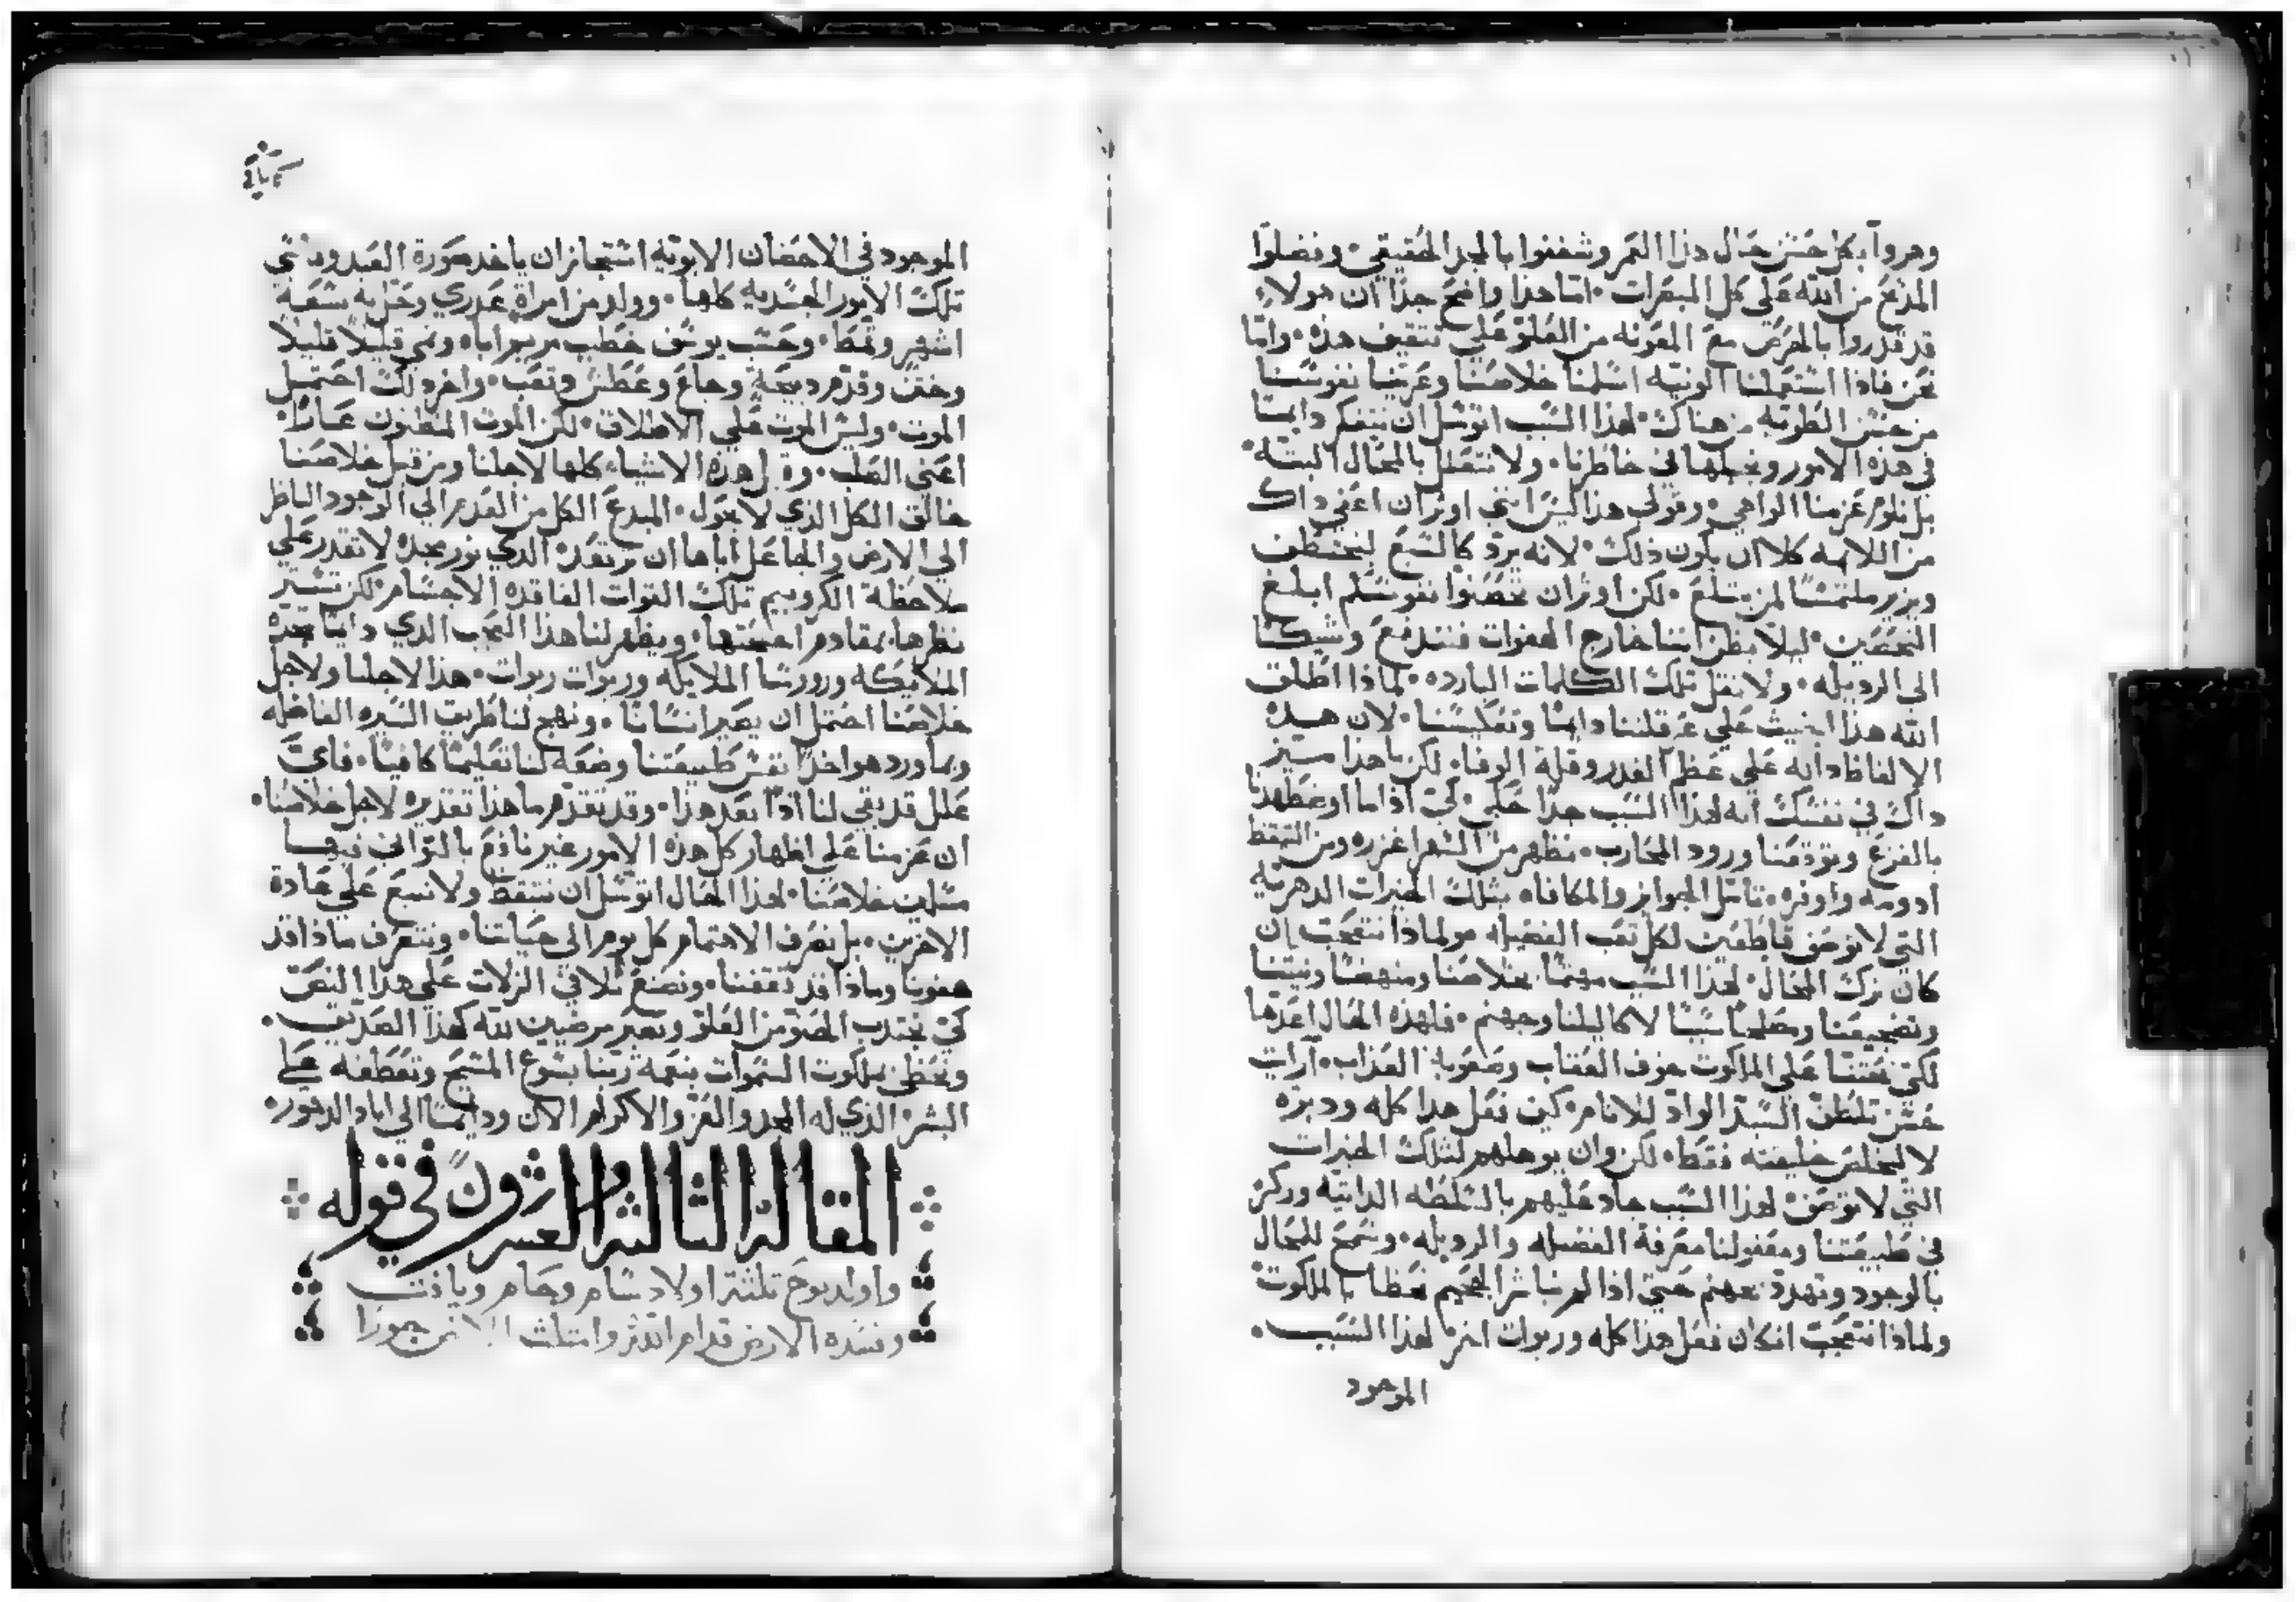 وهروا بكل حسن حال هذا العمر وشغفوا بالمجد الحقيقي· وفضلوا
المدح من الله علي كل المبصرات· اما هذا واضح جدا ان هولاء
قد قدروا بالحرص مع المعونه من العلو علي تثقيف هذه· واما
نحن فاذا استعملنا الونيه اسلمنا خلاصنا وعرينا نفوسنا
من حسن الطوبه من هناك· لهذا السبب اتوسل ان نتفكر دايما
في هذه الامور ونجعلها في خاطرنا· ولا نتعلل بالمحال البته·
بل نلوم عزمنا الواهي· وقولي هذا ليس انني اوثر ان اعفي داك
من اللايمه كلا ان يكون ذلك· لانه يرد كالسبع ليختطف
ويزير ملتمسا لمن يبتلع· لكن اوثر ان تحصنوا نفوسكم ابلغ
التحصين· ليلا نظن اننا خارج الهفوات فنندفع وشيكا
الي الرديله· ولا نقل تلك الكلمات البارده· لماذا اطلق
الله هذا الخبيث علي عرقلتنا دايما وتعكيسنا· لان هذه
الالفاظ داله علي عظم الغدر وقلة الوفا· لكن يا هذا ميز
داك في نفسك انه لهذا السبب جدا خلي· كي اذا ما اوخطهدنا
بالفزع وتوقعنا ورود المحارب· نظهر من السهر اغزره ومن التيقظ
ادومه واوفره· تامل الجوايز والمكافاه بتلك الخيرات الدهريه
التي لا توصف قاطعين لكل تعب الفضيله· ولماذا نتعجب ان
كان ترك المحال· لهذا السبب مهتما بخلاصنا ومنهضا ونيتنا
وتضجيعنا ومصلحا سببا لاكاليلنا وجهنم· فلهذه الحال اعدها
لكي يحثنا علي الملكوت خوف العقاب وصعوبة العذاب· ارايت
حسن تلطف السيد الواد للانام· كيف فعل هذا كله ودبره
لا ليخلص خليقته فقط· لكن وان يوهلهم لتلك الخيرات
التي لا توصف· لهذا السبب جاد عليهم بالسلطه الذاتيه وركز
في طبيعتنا ومعقولنا معرفة الفضيله والرديله· وسمح للمحال
بالوجود وتهدد بجهنم حتي اذا لم نباشر الجحيم نحظا بالملكوت
ولماذا نتعجب ان كان فعل هذا كله وربوات اخر لهذا السبب·
الموجود
الموجود في الاحضان الابويه استجاز ان ياخد صورة العبد ويدني
تلك الامور الجسديه كلها· وولد من امراة عدري وحل به تسعة
اشهر وقمط· وحسب يوسف خطيب مريم اباه ونمي قليلا قليلا
وختن وقدم دبيحة وجاع وعطش وتعب· واخر دلك احتمل
الموت· وليس الموت علي الاطلاق· لكن الموت المظنون عارا·
اعني الصلب· وقبل هذه الاشياء كلها لاجلنا ومن قبل خلاصنا
خالق الكل الذي لا يحول· المبدع الكل من العدم الي الوجود الناظر
الي الارض والجاعل اياها ان ترتعد· الذي نور مجده لا تقدر علي
ملاحظة الكروبيم تلك القوات الفاقده الاجسام· لكن تستر
نظرها بمقادم اجنحتها· ويظهر لنا هذا العجب الذي دايما تمجده
الملايكه وروسا الملايكه وربوات ربوات· هذا لاجلنا ولاجل
خلاصنا احتمل ان يصير انسانا· ونهج لنا طريق السيره الفاضله
وبما ورد هو اخذا نفس طبيعتنا وضعه لنا تعليما كافيا· فاية
علل قد بقي لنا اذا بعد هذا· وقد تقدم ما هذا تقديره لاجل خلاصنا·
ان عزمنا علي اظهار كل هذه الامور غير نافع بالتواني فيها
مسلمين خلاصنا· لهذا الحال اتوسل ان نتيقظ ولا نتبع علي عادة
الاخرين· بل نصرف الاهتمام كل يوم الي حياتنا· ونتعرف ماذا قد
هفونا وماذا قد ثقفنا· ونصنع تلافي الزلات علي هذا النص
كي نجتدب الصو من العلو ونصير مرضيين لله كهذا الصديق·
ونحظي بملكوت السموات بنعمة ربنا يسوع المسيح وتعطفه علي
البشر الذي له المجد والعز والاكرام الان ودايما الي اباد الدهور·
المقالة الثالثة والعشرون في قوله
واولد نوح تلتة اولاد سام وحام ويافت
وفسده الارض قدام الله وامتلت الارض جورا